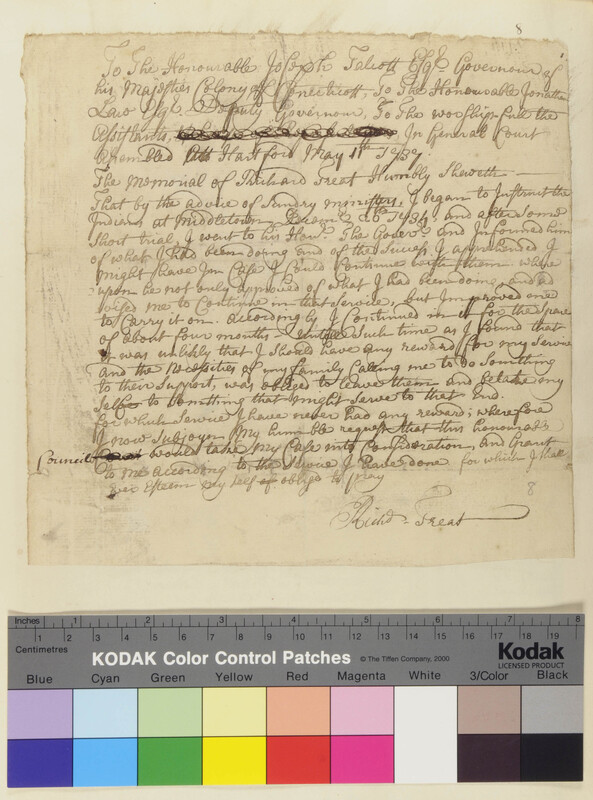 8
To The Honourable Joseph Talcott Esqr. Governour of
his Majesties Colony of Conecticott, To The Honourable Jonathan
Law Esqr. Deputy Governour, To The worshipfull the
Assistants, In General Court
Assembled Att Hartford May 11th 1737
The Memorial of Richard Treat Humbly Sheweth
That by the advice of Sundry ministers, I began to Instruct the
Indians at Middletown 26th 1734 and after some
Short trial, I went to his Honr. The Governr. and Informed him
of what I had been doing and of the Success I apprehended I
might have in Case I Could Continue with them where
upon he not only approved of what I had been doing, and ad
vised me to Continue in that Service, but Improved me
to Carry it on. accordingly I Continued in it for the Space
of about four months Untill Such time as I found that
it was unlikely that I Should have any reward for my Service
and the Necessities of my family Calling me to Do Somthing
to their Support, was obliged to leave them and betake my
Self to Somthing that might Serve to that End.
for which Service I have never had any reward; wherefore
I now Subjoyn My humble request that this honorable
Council would take my Case into Consideration, and Grant
to me according to the Service I have done for which I shall
ever Esteem my self obliged to pray
8
Richd. Treat
Inches 1 2 3 4 5 6 7 8
Centimetres 1 2 3 4 5 6 7 8 9 10 11 12 13 14 15 16 17 18 19
KODAK Color Control Patches © The Tiffen Company, 2000 Kodak
LICENSED PRODUCT
Blue Cyan Green Yellow Red Magenta White 3/Color Black